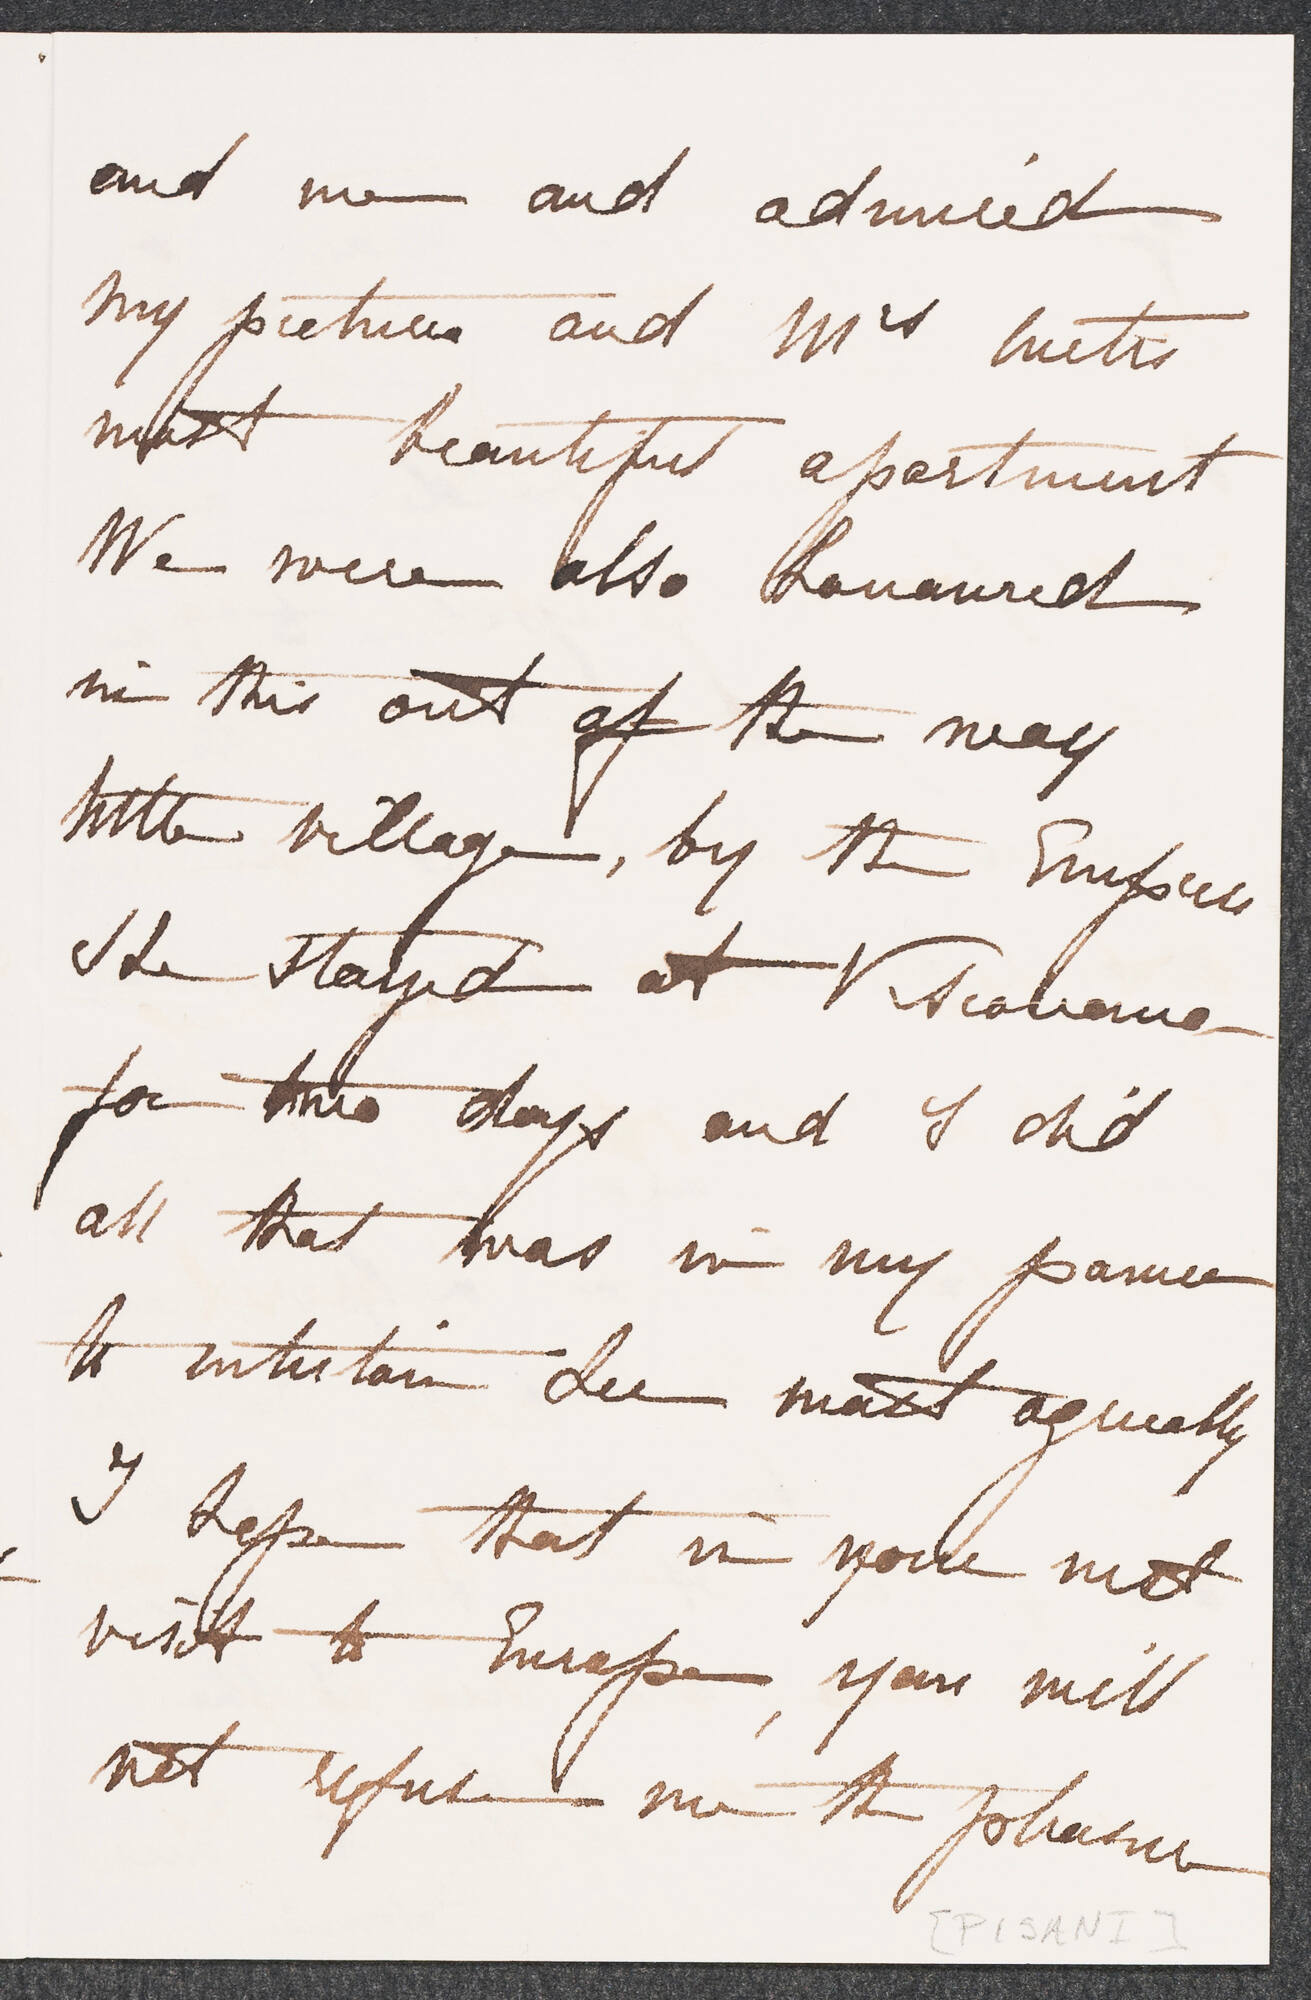 and me and admired
my pictures and Mrs
most beautiful apartment
We were also honoured
in this out of the way
little village, by the Empress
She stayed at Vescovana
for two days and I did
all that was in my power
to entertain her most agreeably
I hope that in your next
visit to Europe, you will
not refuse me the pleasure
[PISANI]